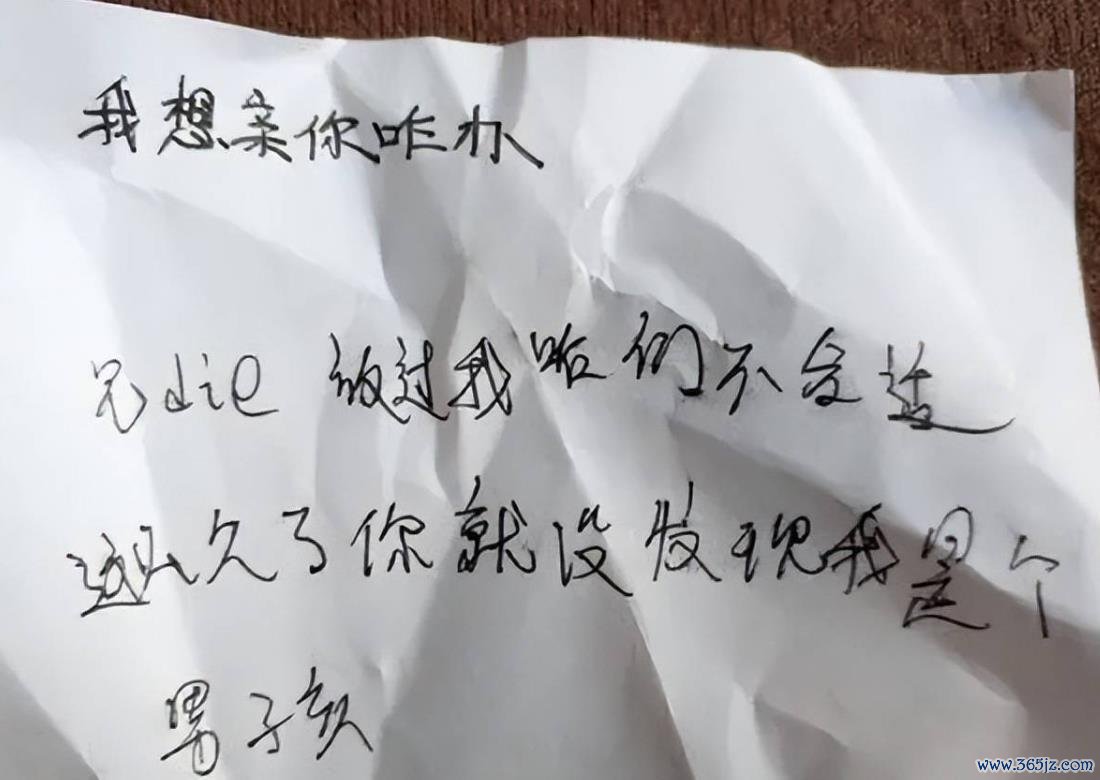 我想亲你咋办
兄die 放过我咱们不合适
这么久了你就没发现我是个
男子孩
www.365jz.com